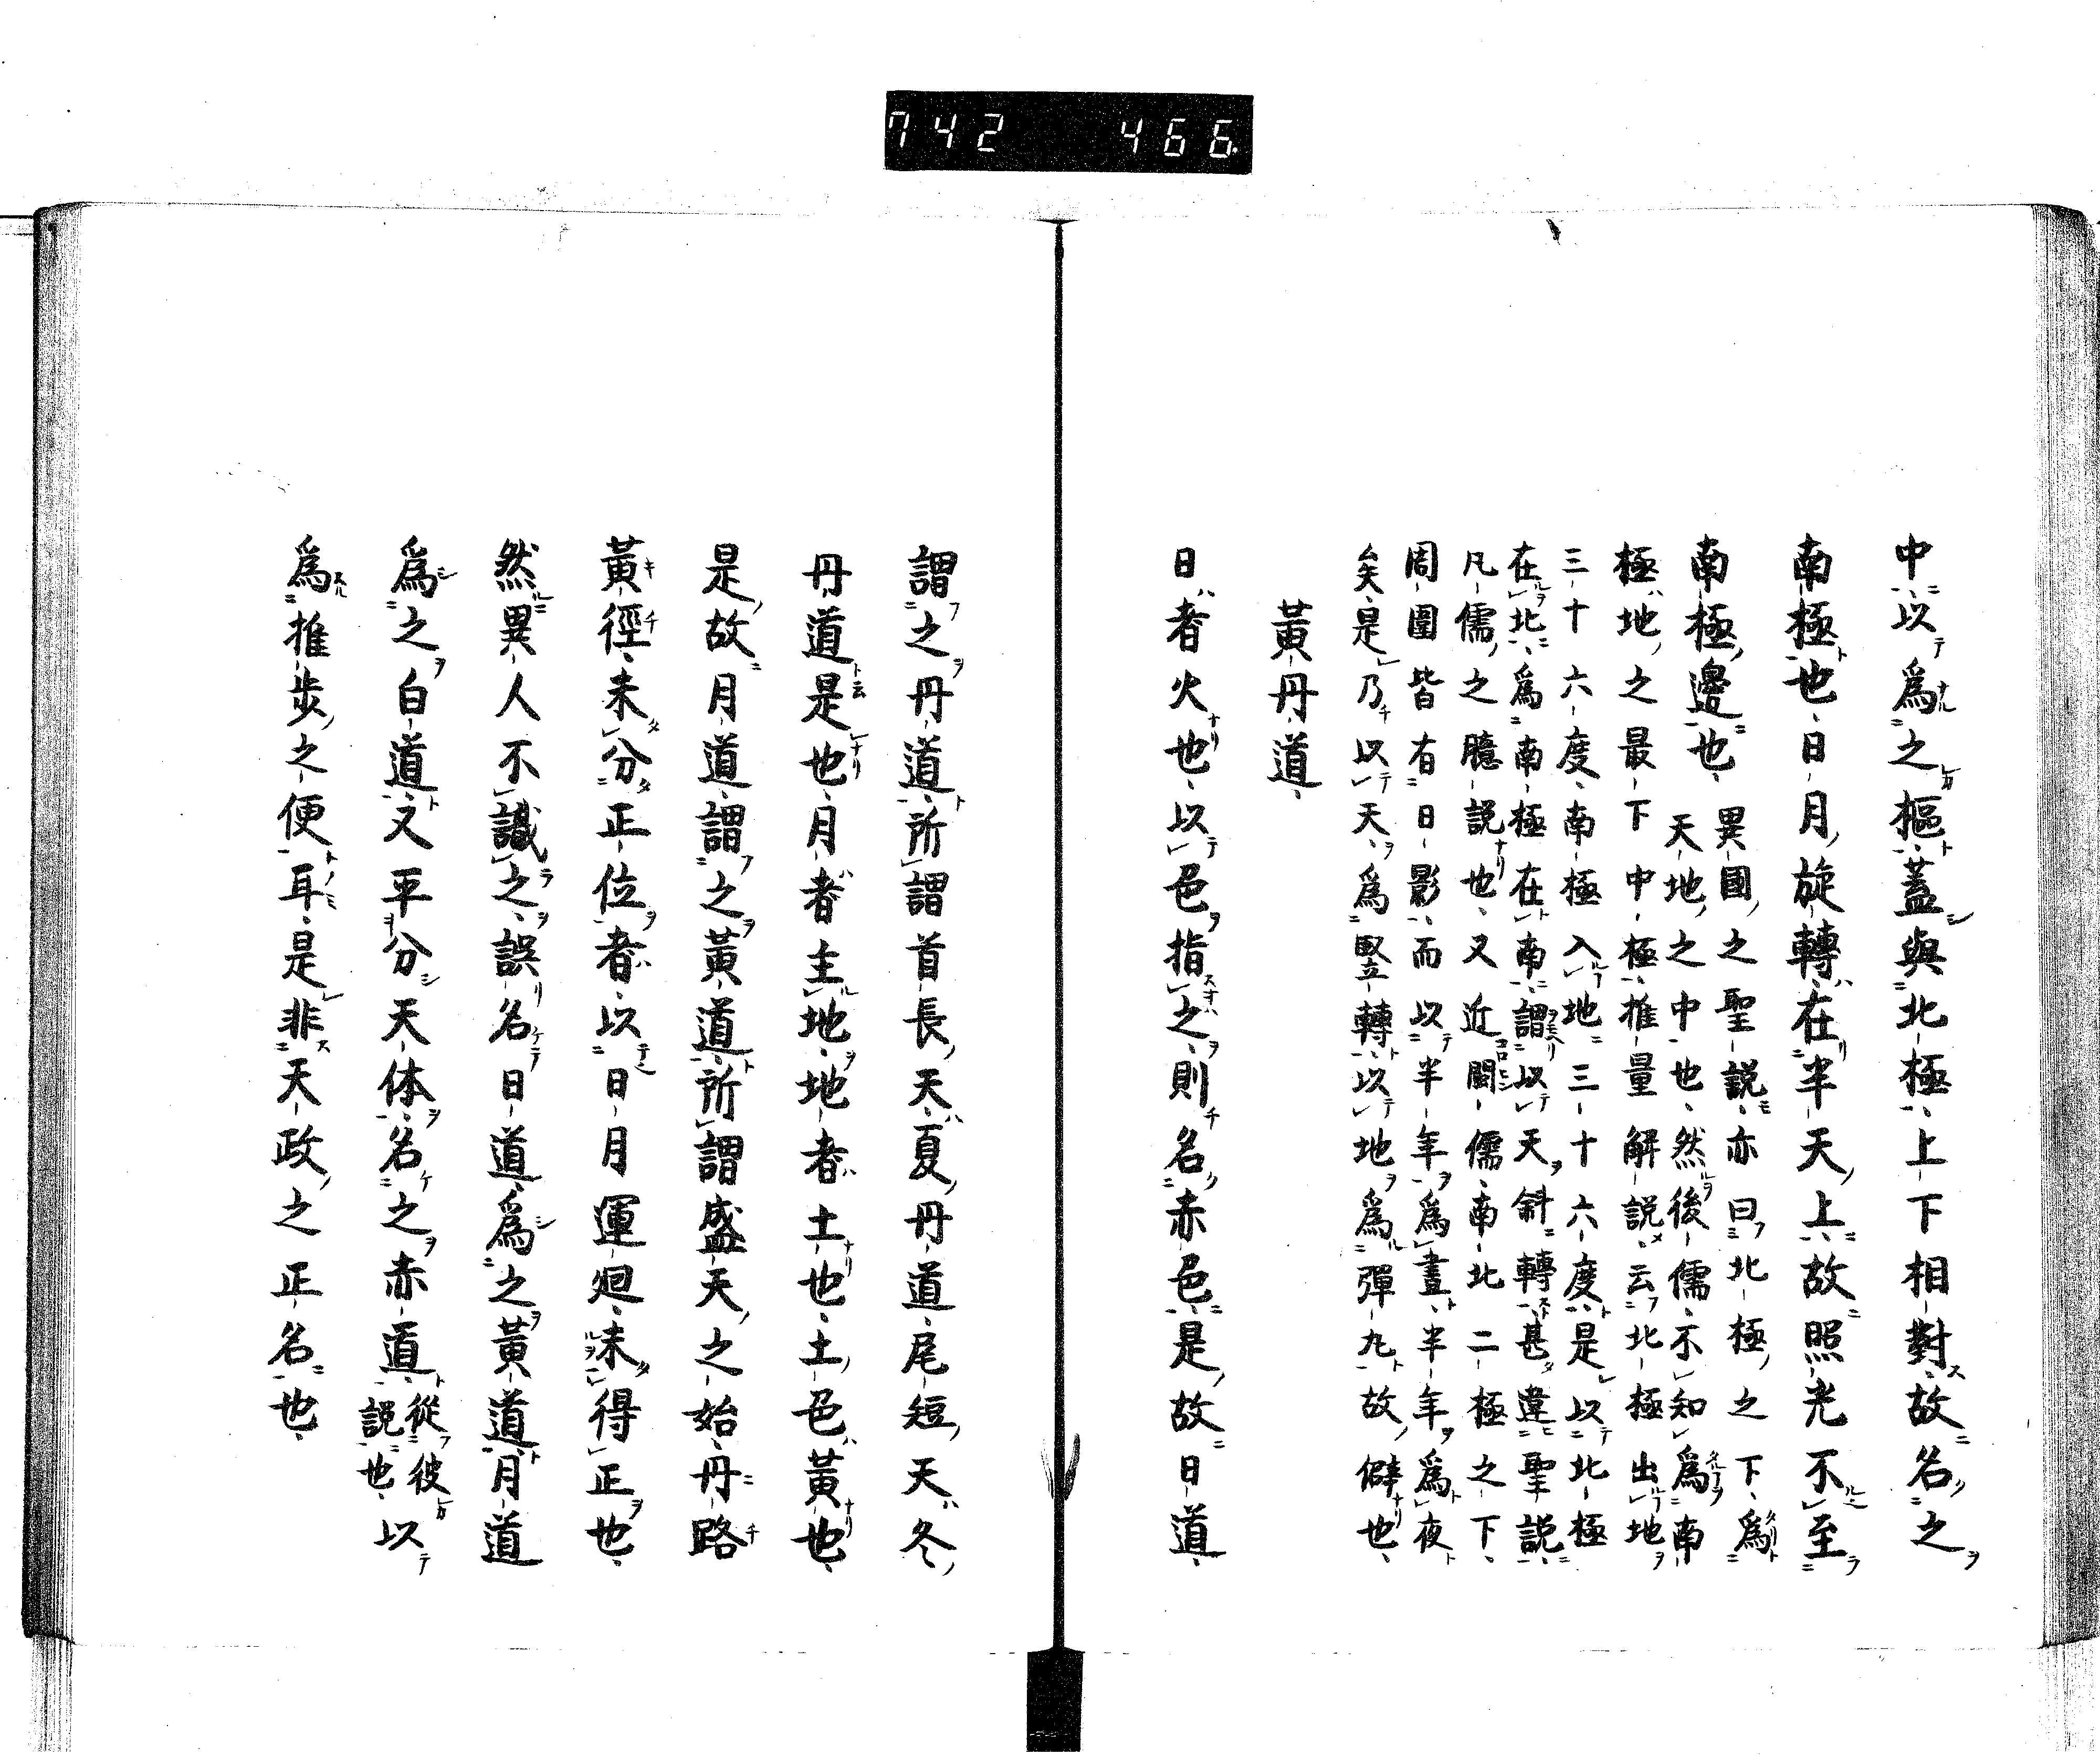 742 466
中以爲之樞蓋與北極上下相對故名之
南極也日月旋轉在半天上故照光不至
南極邊也
異國之聖說亦曰北極之下爲
天地之中也然後儒不知爲南
極地之最下中極推量解說云北極出地
三十六度南極入地三十六度是以北極
在北爲南極在南謂以天斜轉甚違聖說
凡儒之臆說也又近閩儒南北二極之下
周圍皆有日影而以半年爲晝半年爲夜
矣是乃以天爲竪轉以地爲彈丸故僻也
黃丹道
日者火也以色指之則名赤色是故日道
謂之丹道所謂首長天夏丹道尾短天冬
丹道是也月者主地地者土也土色黃也
是故月道謂之黃道所謂盛天之始丹路
黃徑未分正位者以日月運廻未得正也
然異人不識之誤名日道爲之黃道月道
爲之白道又平分天体名之赤道
從彼
說也
以
爲推步之便耳是非天政之正名也